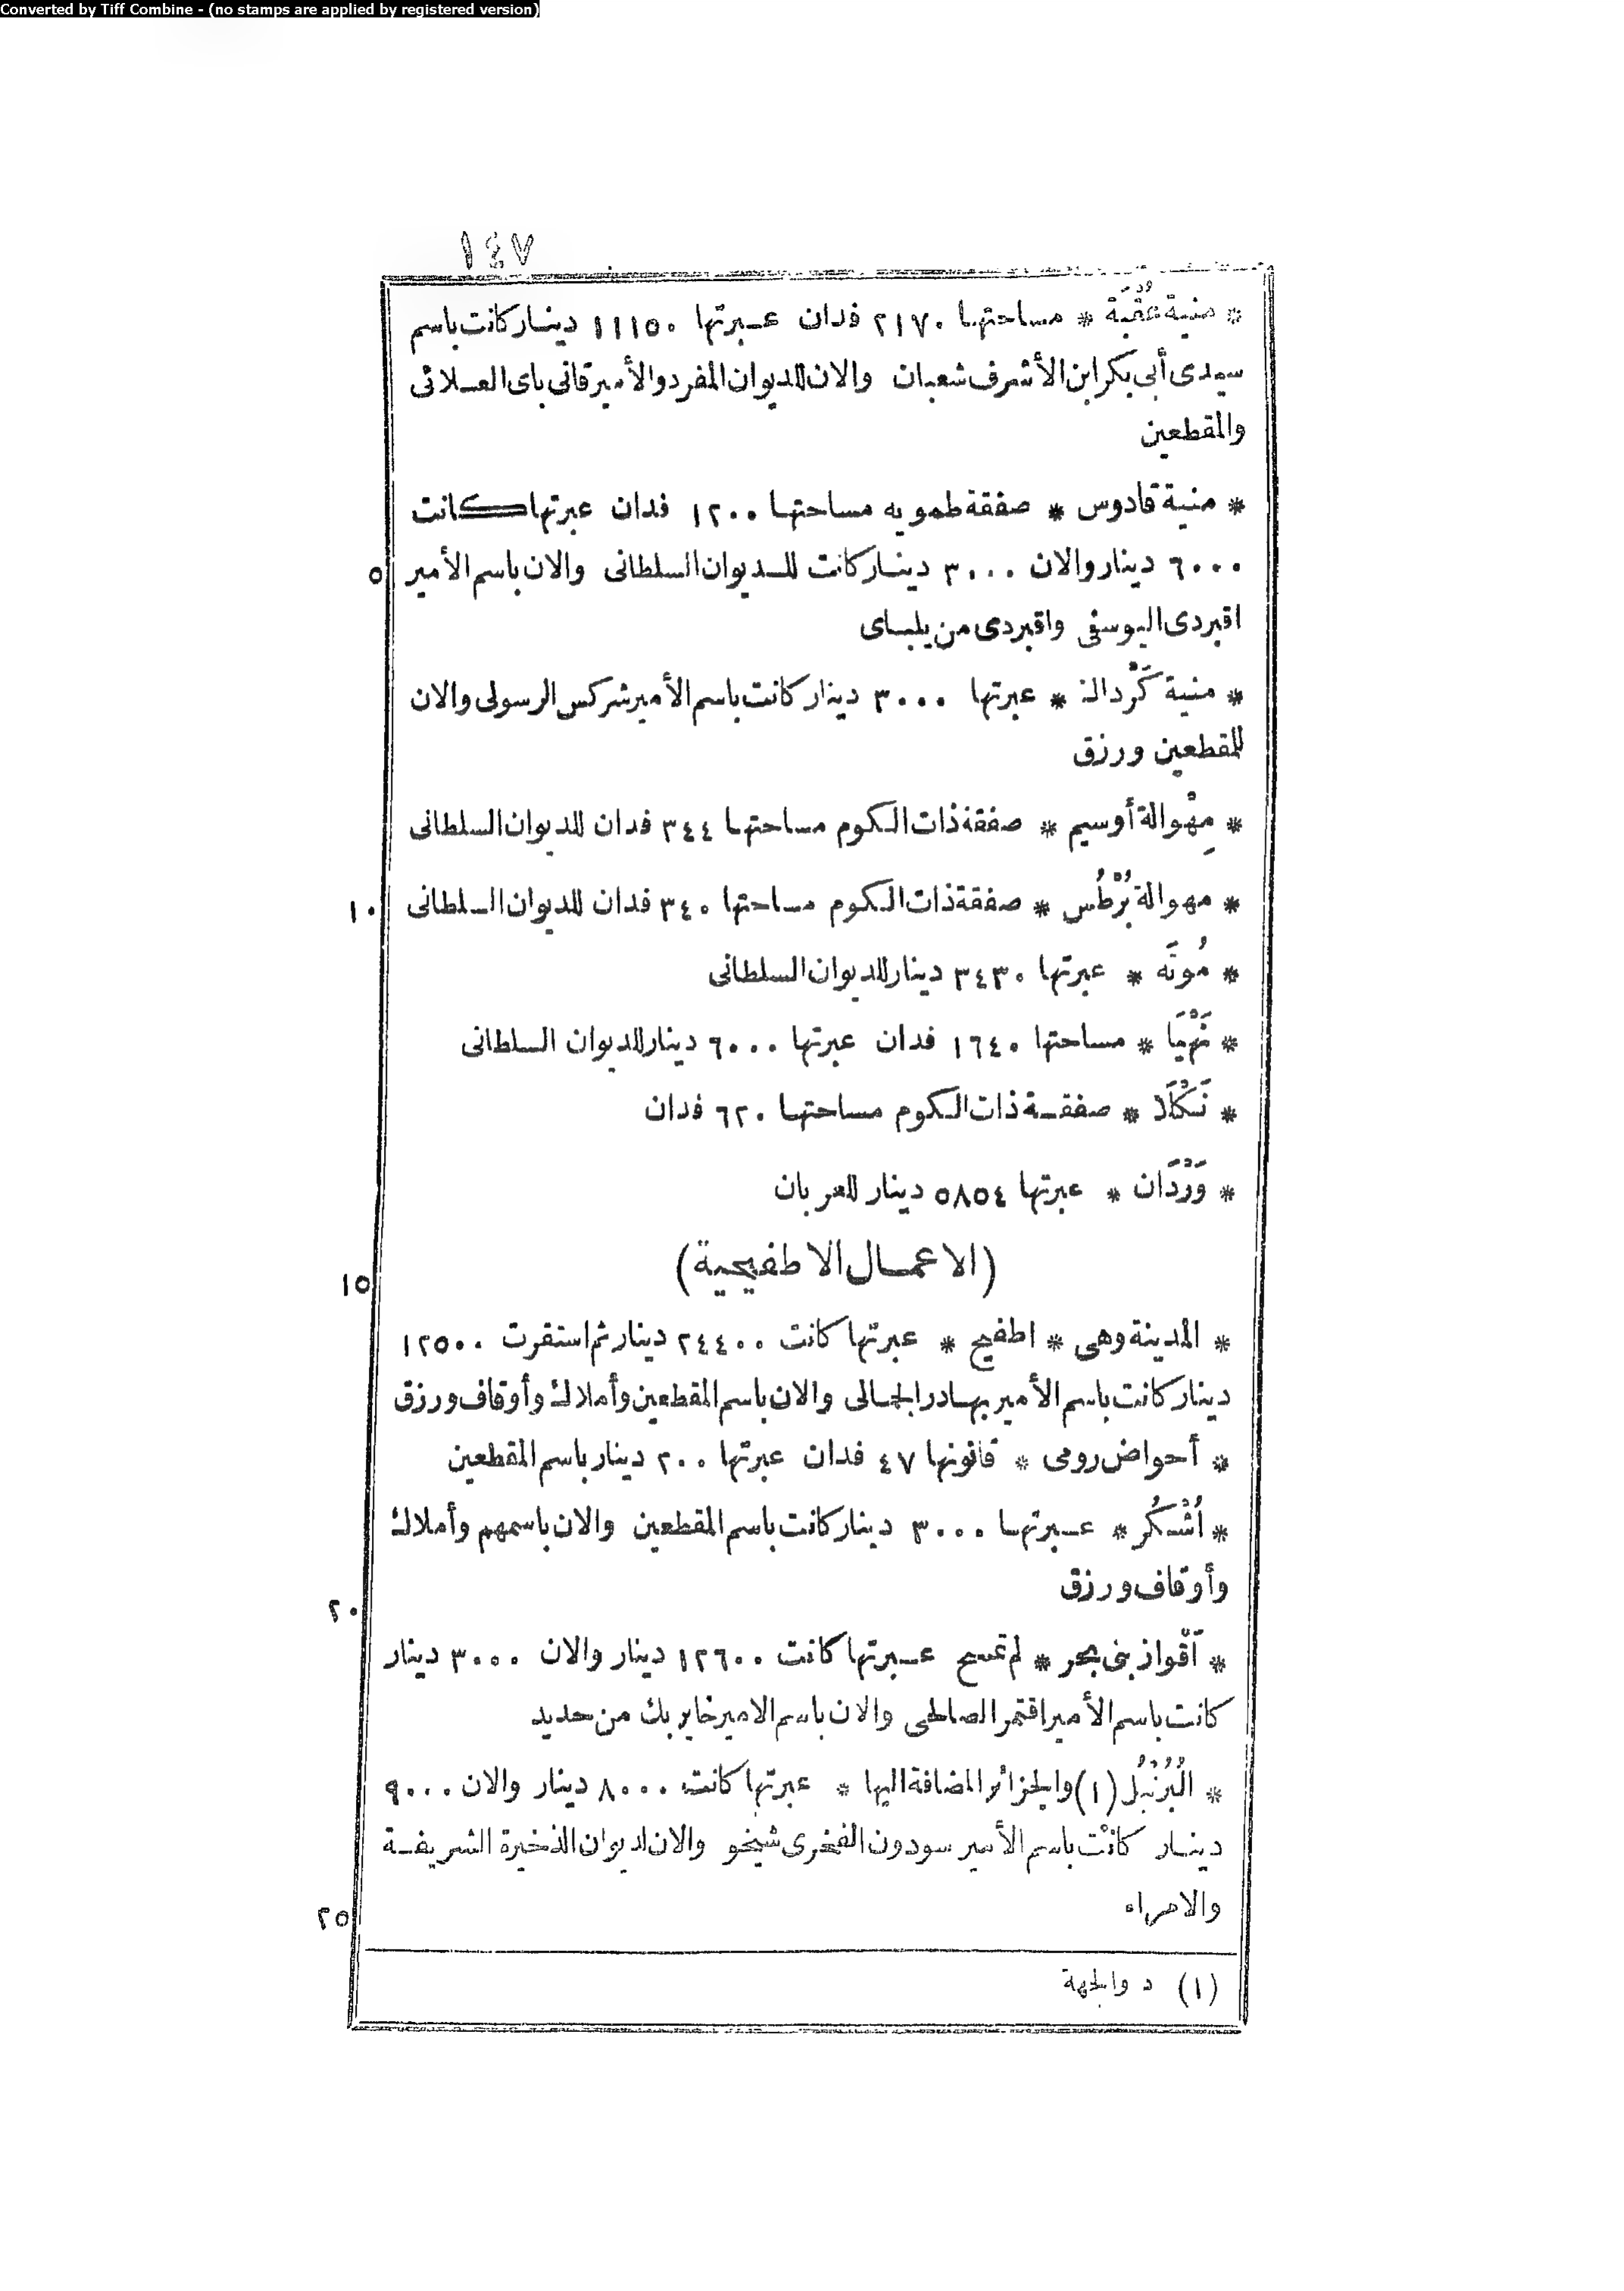 Converted by Tiff Combine - (no stamps are applied by registered version)
١٤٧
* منية عُقْبَة * مساحتها ٢١٧٠ فدان عبرتها ١١١٥٠ دينار كانت باسم
سيدى أبى بكر ابن الأشرف شعبان والان للديوان المفرد والأمير قانى باى العلائى
والمقطعين
* منية قادوس * صفقة طمويه مساحتها ١٢٠٠ فدان عبرتها كانت
٦٠٠٠ دينار والان ٣٠٠٠ دينار كانت للديوان السلطانى والان باسم الأمير ٥
اقبردى اليوسفى واقبردى من يلباى
* منية كَرْدالة * عبرتها ٣٠٠٠ دينار كانت باسم الأمير شركس الرسولى والان
للمقطعين ورزق
* مِهْوالة أوسيم * صفقة ذات الكوم مساحتها ٣٤٤ فدان للديوان السلطانى
* مهوالة بُرْطُس * صفقة ذات الكوم مساحتها ٣٤٠ فدان للديوان السلطانى ١٠
* مُونَه * عبرتها ٣٤٣٠ دينار للديوان السلطانى
* نَهْيَا * مساحتها ١٦٤٠ فدان عبرتها ٦٠٠٠ دينار للديوان السلطانى
* نَكْلَا * صفقة ذات الكوم مساحتها ٦٢٠ فدان
* وَرْدَان * عبرتها ٥٨٥٤ دينار للعربان
(الاعمال الاطفيحية) ١٥
* المدينة وهى * اطفيح * عبرتها كانت ٢٤٤٠٠ دينار ثم استقرت ١٢٥٠٠
دينار كانت باسم الأمير بهادر الجمالى والان باسم المقطعين وأملاك وأوقاف ورزق
* أحواض رومى * قانونها ٤٧ فدان عبرتها ٢٠٠ دينار باسم المقطعين
* اُشْكُر * عبرتها ٣٠٠٠ دينار كانت باسم المقطعين والان باسمهم وأملاك
وأوقاف ورزق ٢٠
* اَقْواز بنى بحر * لم تمسح عبرتها كانت ١٢٦٠٠ دينار والان ٣٠٠٠ دينار
كانت باسم الأمير اقتمر الصالحى والان باسم الامير خاير بك من حديد
* الْبُرُنْبُل (١) والجزائر المضافة اليها * عبرتها كانت ٨٠٠٠ دينار والان ٩٠٠٠
دينار كانت باسم الأمير سودون الفخرى شيخو والان لديوان الذخيرة الشريفة
والامراء ٢٥
(١) د والجهة